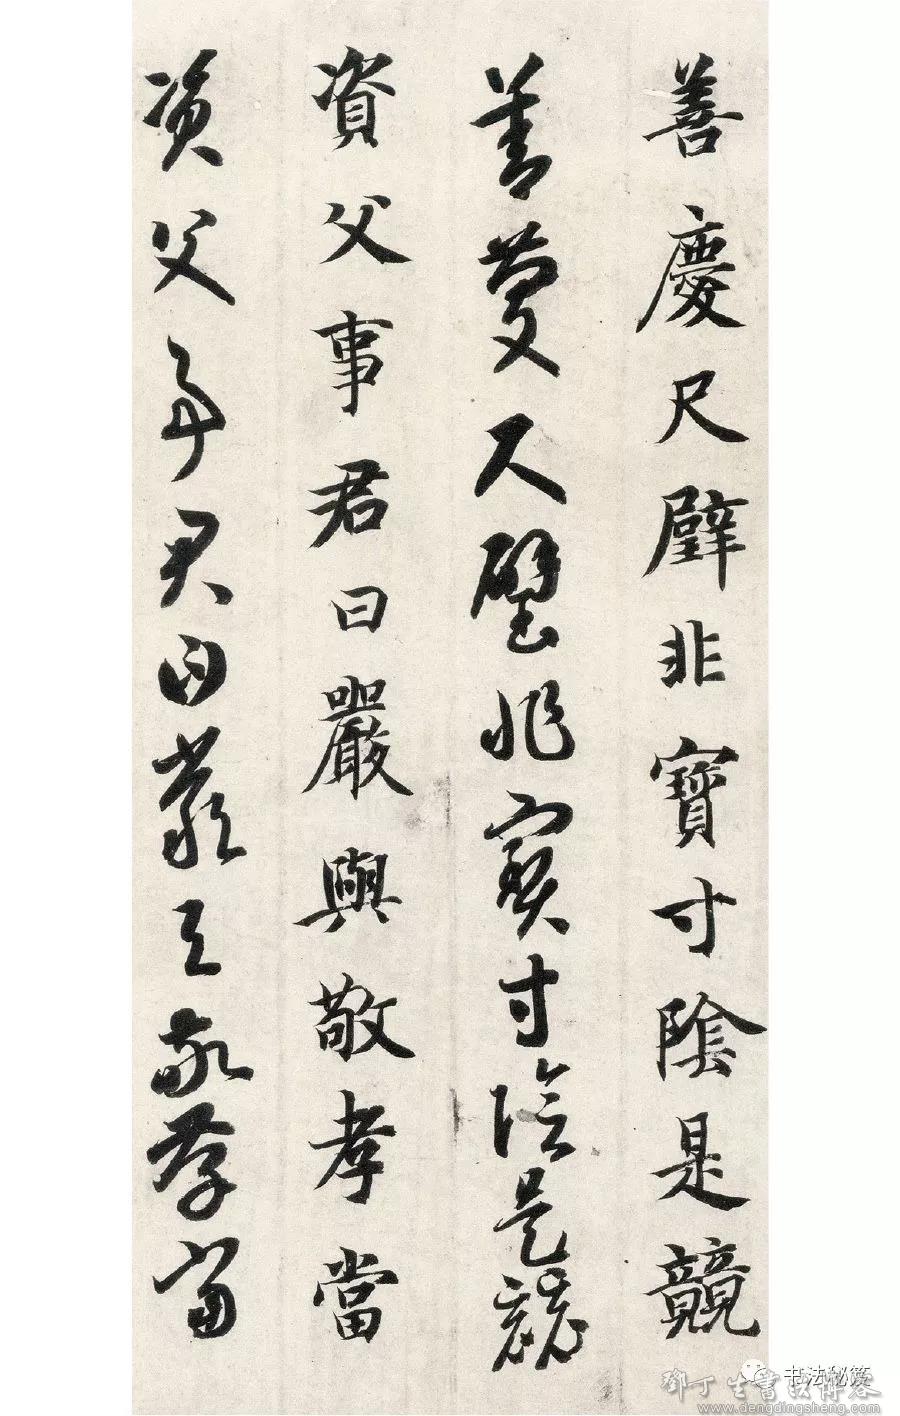 善慶尺璧非寶寸陰是競
善慶尺璧非寶寸陰是競
資父事君曰嚴與敬孝當
資父事君曰嚴與敬孝當
书法秘笈
鄧丁生書法博客
www.dengdingsheng.com